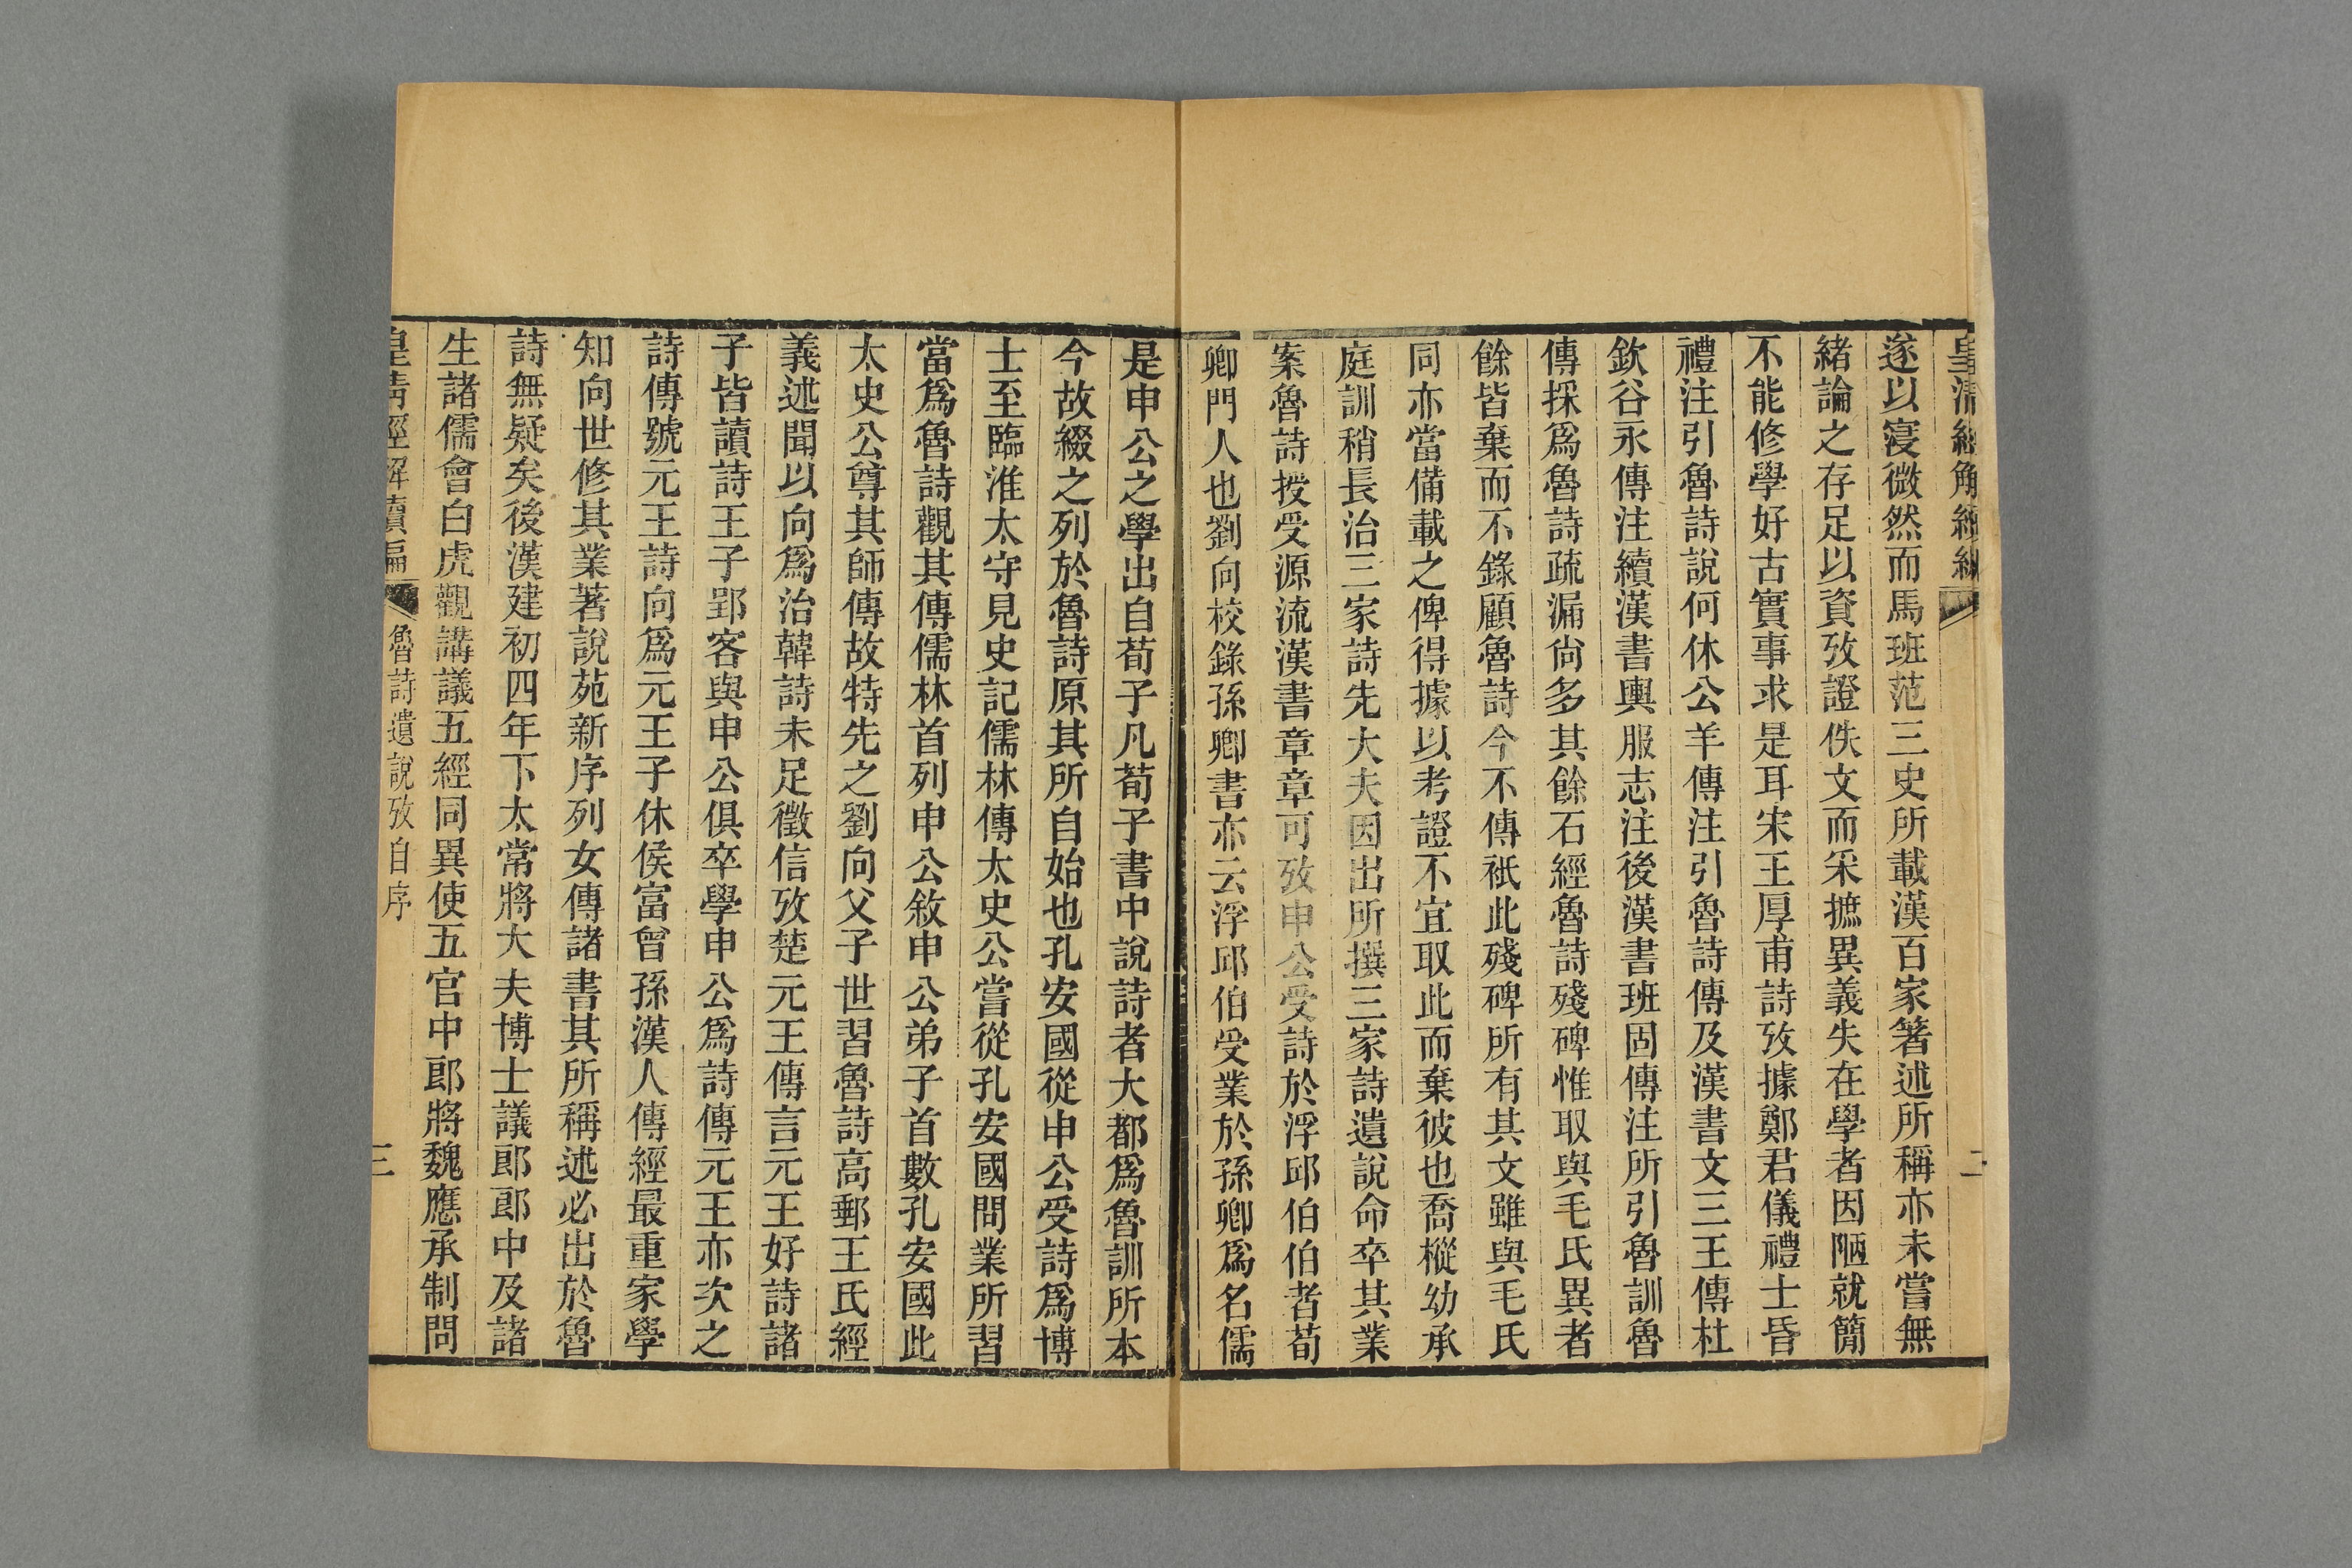 遂以寖微然而馬班范三史所載漢百家箸述所稱亦未嘗無
緒論之存足以資攷證佚文而采摭異義失在學者因陋就簡
不能修學好古實事求是耳宋王厚甫詩攷據鄭君儀禮士昏
禮注引魯詩說何休公羊傳注引魯詩傳及漢書文三王傳杜
欽谷永傳注續漢書輿服志注後漢書班固傳注所引魯訓魯
傳採爲魯詩疏漏尙多其餘石經魯詩殘碑惟取與毛氏異者
餘皆棄而不錄顧魯詩今不傳祇此殘碑所有其文雖與毛氏
同亦當備載之俾得據以考證不宜取此而棄彼也喬樅幼承
庭訓稍長治三家詩先大夫因出所撰三家詩遺說命卒其業
案魯詩授受源流漢書章章可攷申公受詩於浮邱伯伯者荀
卿門人也劉向校錄孫卿書亦云浮邱伯受業於孫卿爲名儒
是申公之學出自荀子凡荀子書中說詩者大都爲魯訓所本
今故綴之列於魯詩原其所自始也孔安國從申公受詩爲博
士至臨淮太守見史記儒林傳太史公嘗從孔安國問業所習
當爲魯詩觀其傳儒林首列申公敘申公弟子首數孔安國此
太史公尊其師傳故特先之劉向父子世習魯詩高郵王氏經
義述聞以向爲治韓詩未足徵信攷楚元王傳言元王好詩諸
子皆讀詩王子郢客與申公俱卒學申公爲詩傳元王亦次之
詩傳號元王詩向爲元王子休侯富曾孫漢人傳經最重家學
知向世修其業著說苑新序列女傳諸書其所稱述必出於魯
詩無疑矣後漢建初四年下太常將大夫博士議郎郎中及諸
生諸儒會白虎觀講議五經同異使五官中郎將魏應承制問
皇清經解續編 魯詩遺說攷自序 三